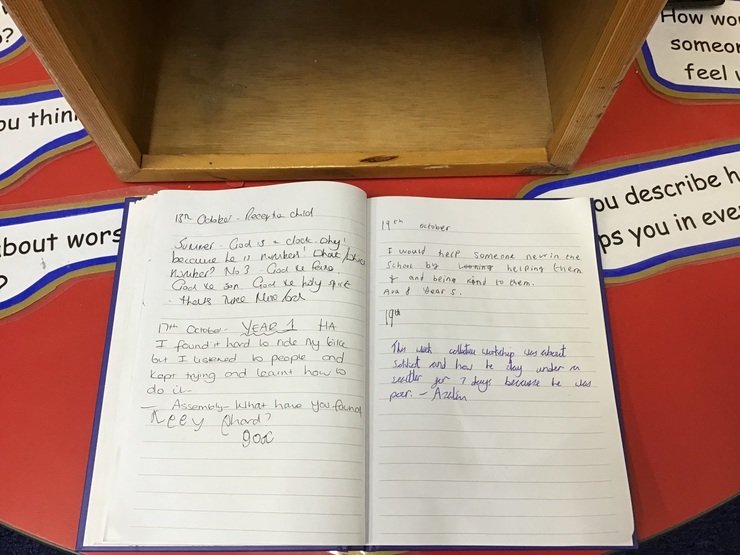 ?
ou thin
bout wors
?
How wo
someon
feel
ou describe h
ps you in eve
18th October - Reception child
Summer - God is a clock. Why?
because he is numbers! What
number? No 3. God
God son God holy
thats three
17th October - YEAR 1 HA
I found it hard to ride my bike
but I listened to people and
kept trying and learnt how to
do it.
Assembly - What have you found
hard?
19th october
I would help someone new in the
School by helping them
and being kind to them.
Year 5.
19th
This week collective worship was about
and how he under a
for 7 days because he was
poor. -